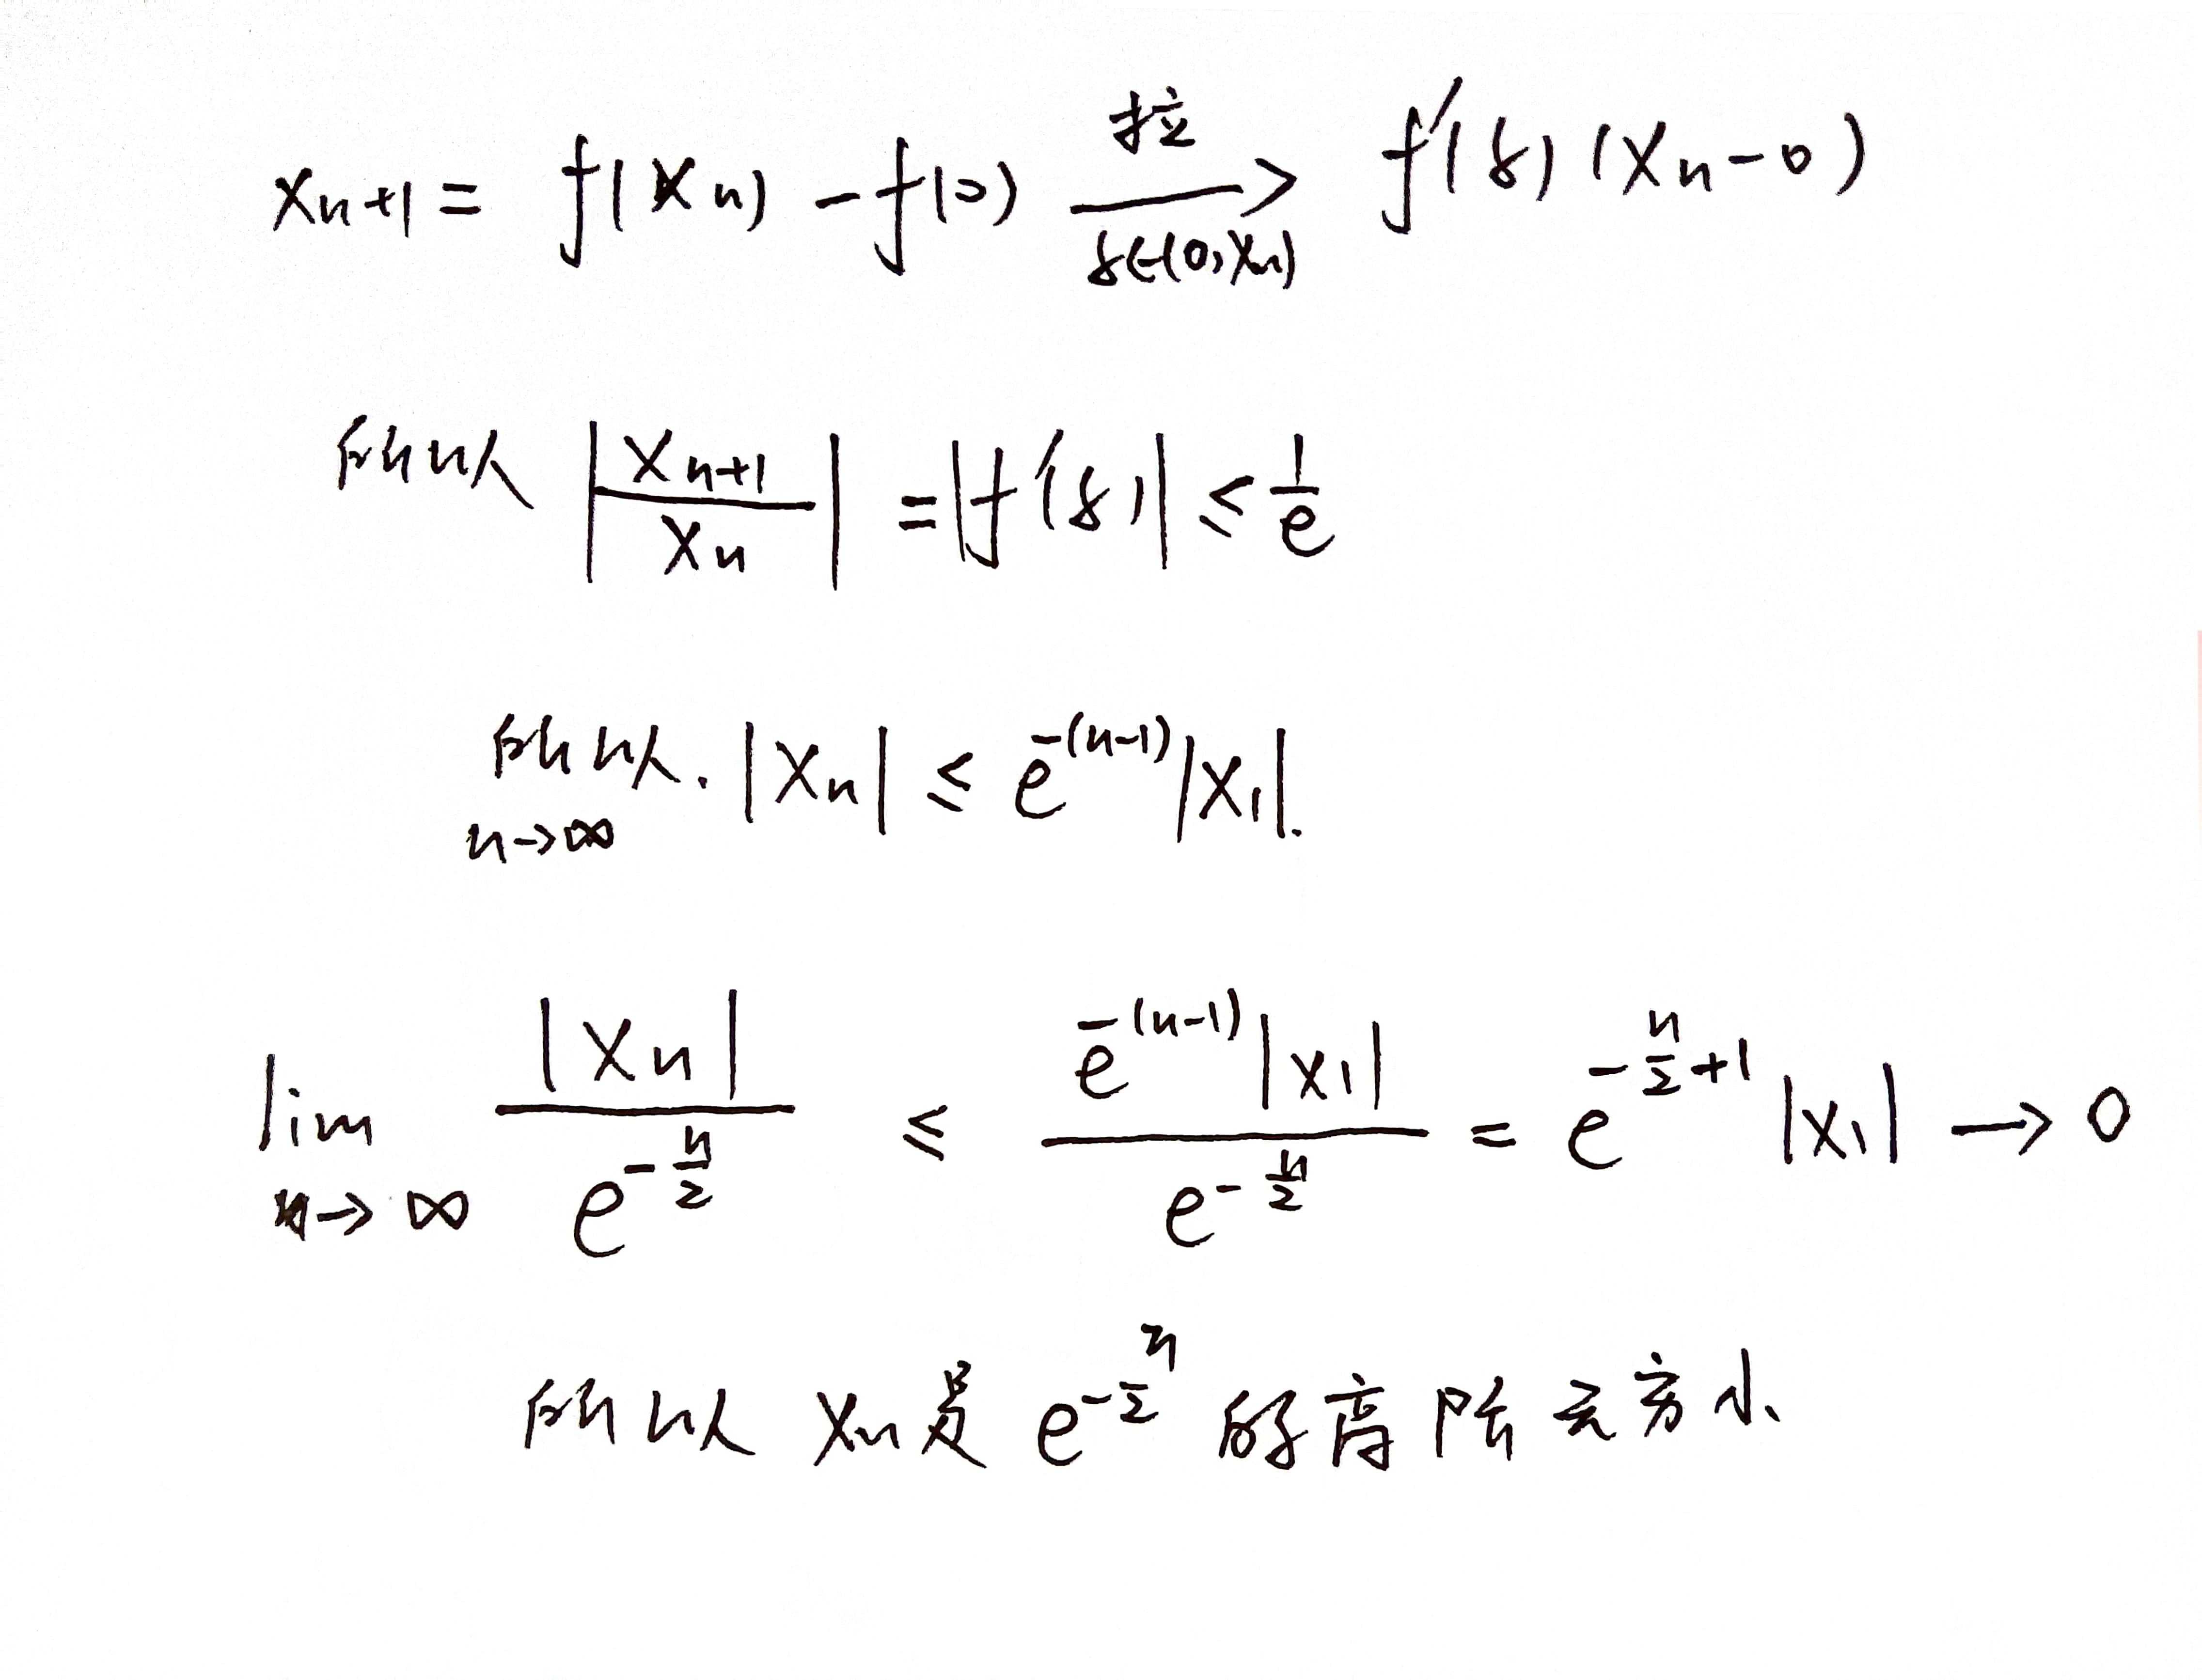 x_{n+1} = f(x_n) - f(0) \xrightarrow[ξ∈(0,x_n)]{拉} f'(ξ)(x_n-0)
所以 |\frac{x_{n+1}}{x_n}| = |f'(ξ)| ≤ \frac{1}{e}
所以. |x_n| ≤ e^{-(n-1)}|x_1|.
n→∞
\lim_{n→∞} \frac{|x_n|}{e^{-\frac{n}{2}}} ≤ \frac{e^{-(n-1)}|x_1|}{e^{-\frac{n}{2}}} = e^{-\frac{n}{2}+1}|x_1| → 0
所以 x_n是 e^{-\frac{n}{2}} 的高阶无穷小